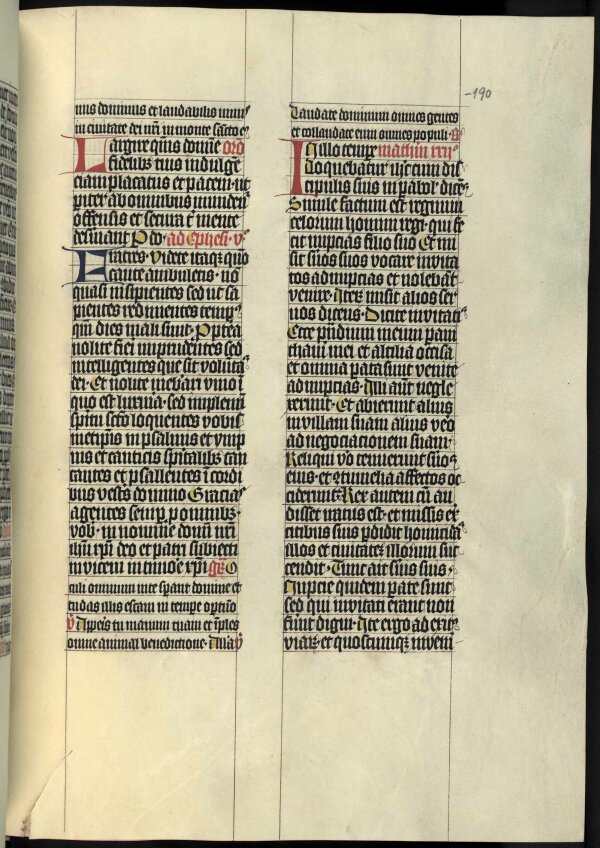 -190
nus dominus et laudabilis nimi
in ciuitate dei nr̄i in monte sancto eˀ
Largire q̄us dom̄e oro
fidelibꝫ tuis indulgē
ciam placatus et pacem · ut
piter ab omnibus mundenˀ
offensis et secura t̄ mente
deseruiant P̄ co · ad Ephesi · v
Fratres · Videte itaqꝫ quo
caute ambuletis · nō
quasi insipientes sed ut sa
pientes redimentes tempꝰ
qm̄ dies mali sunt · Ptea
nolite fieri imprudentes sed
intelligentes que sit voluntaˢ
dei · Et nolite inebari vino ī
quo est luxuria · sed implemī
spiritu sc̄to loquentes vobis
metipīs in psalmis et ymp
nis et canticis spūalibꝫ can
tantes et psallentes ī cordi
bus vesīs domino Gracias
agentes semp̱ p omnibꝫ
vob̄ · in nomine domī nrī
ih̄u xp̄i deo et patri subiecti
inuicem in timore xp̄i gr̄ O
culi omnium in te sp̱ant domine et
tu das illis escam in tempe optīo
v̄ Ap̱is tu manum tuam et īples
omne animal benedictione · Alla v̄
Laudate dominum omnes gentes
et collaudate eum omnes populi · S
In illo tempe mathm̄ xxij
loquebatur ih̄c cum dis
cipulis suis in pabol̄ dicēs
Simile factum est regnum
celorum homini regi · qui fe
cit nupcias filio suo Et mi
sit suos suos vocare inuita
tos ad nupcias et nolebāt
venire · Itēꝫ misit alios ser
uos dicens · Dicite inuitatis
Ecce p̄ndium meum para
tauri mei et altilia occisa
et omnia pata sunt venite
ad nupcias · Illi aūt negle
xerunt · Et abierunt alius
in villam suam alius vēo
ad negociacionem suam ·
Reliqui v̄o tenuerunt suos
eius · et ꝯtumelia affectos oc
ciderunt · Rex autem cū au
disset iratus est · et missis ex
citibus suis p̱didit homicidaˢ
illos et ciuitateꝫ illorum suc
cendit · Tunc ait suis suis ·
Nupcie quidem pate sunt
sed qui inuitati erant non
fūnt digni · Ite ergo ad exit
viaꝝ · et quoscumqꝫ inuenī